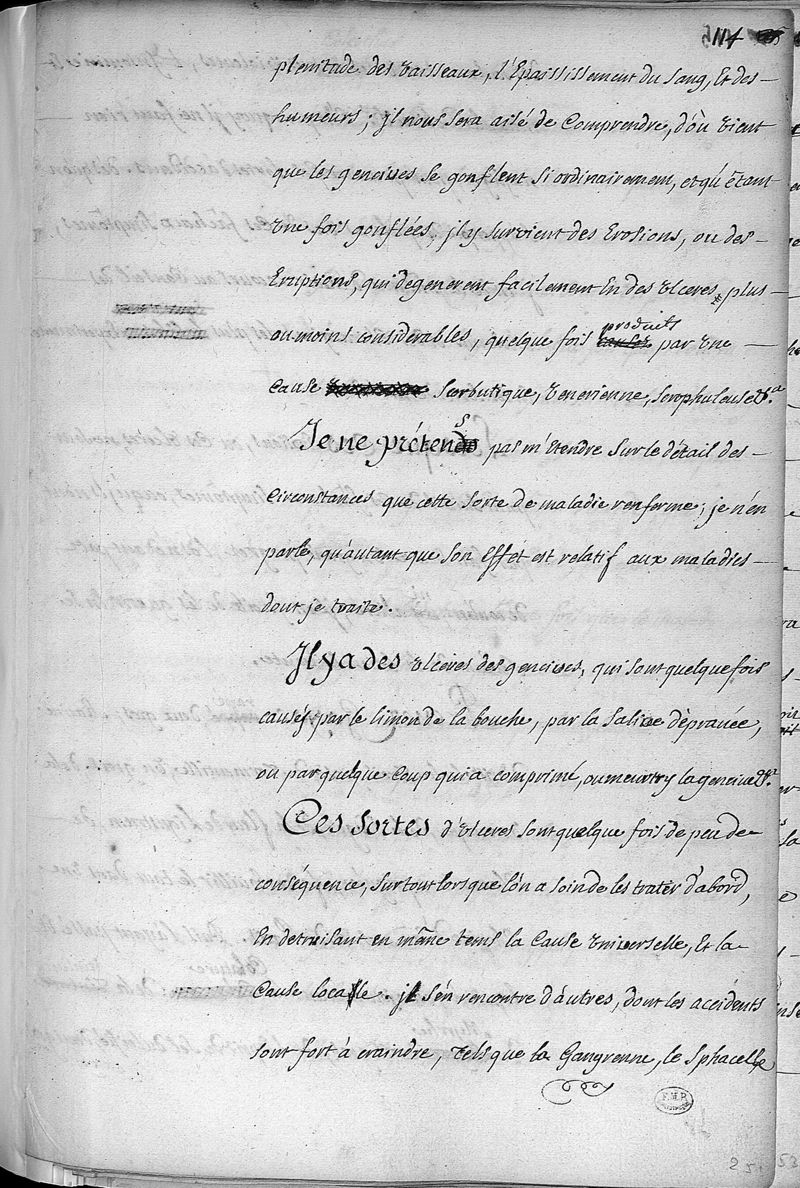 114
plenitude des vaisseaux, l'Epaississement du sang, Et des
humeurs; jl nous sera aisé de Comprendre, d'où vient
que les gencives se gonflent si ordinairement, et qu'êtant
vne fois gonflées, jl y survient des Erosions, ou des
Eruptions, qui dégenerent facilement En des vlceres, plus
ou moins considérables, quelque fois produits par vne
Cause Scorbutique, venerienne, Scrophuleuse &.a
Je ne prétens pas m'Etendre sur le détail des
Circonstances que cette sorte de maladie renferme; je n'en
parle, qu'autant que son Effét est relatif aux maladies
dont je traite.
Jl y a des vlceres des gencives, qui sont quelque fois
causés par le limon de la bouche, par la salive dépravée,
ou par quelque Coup qui a comprimé, ou meurtry la gencive &.a
Ces sortes d'vlceres sont quelque fois de peu de
conséquence, surtout lorsque l'on a soin de les traiter d'abord,
En detruisant en même tems la Cause vniverselle, Et la
Cause locale. jl s'en rencontre d'autres, dont les accidents
sont fort à craindre, tels que la Gangrenne, le sphacelle
F.M.P.
25
53